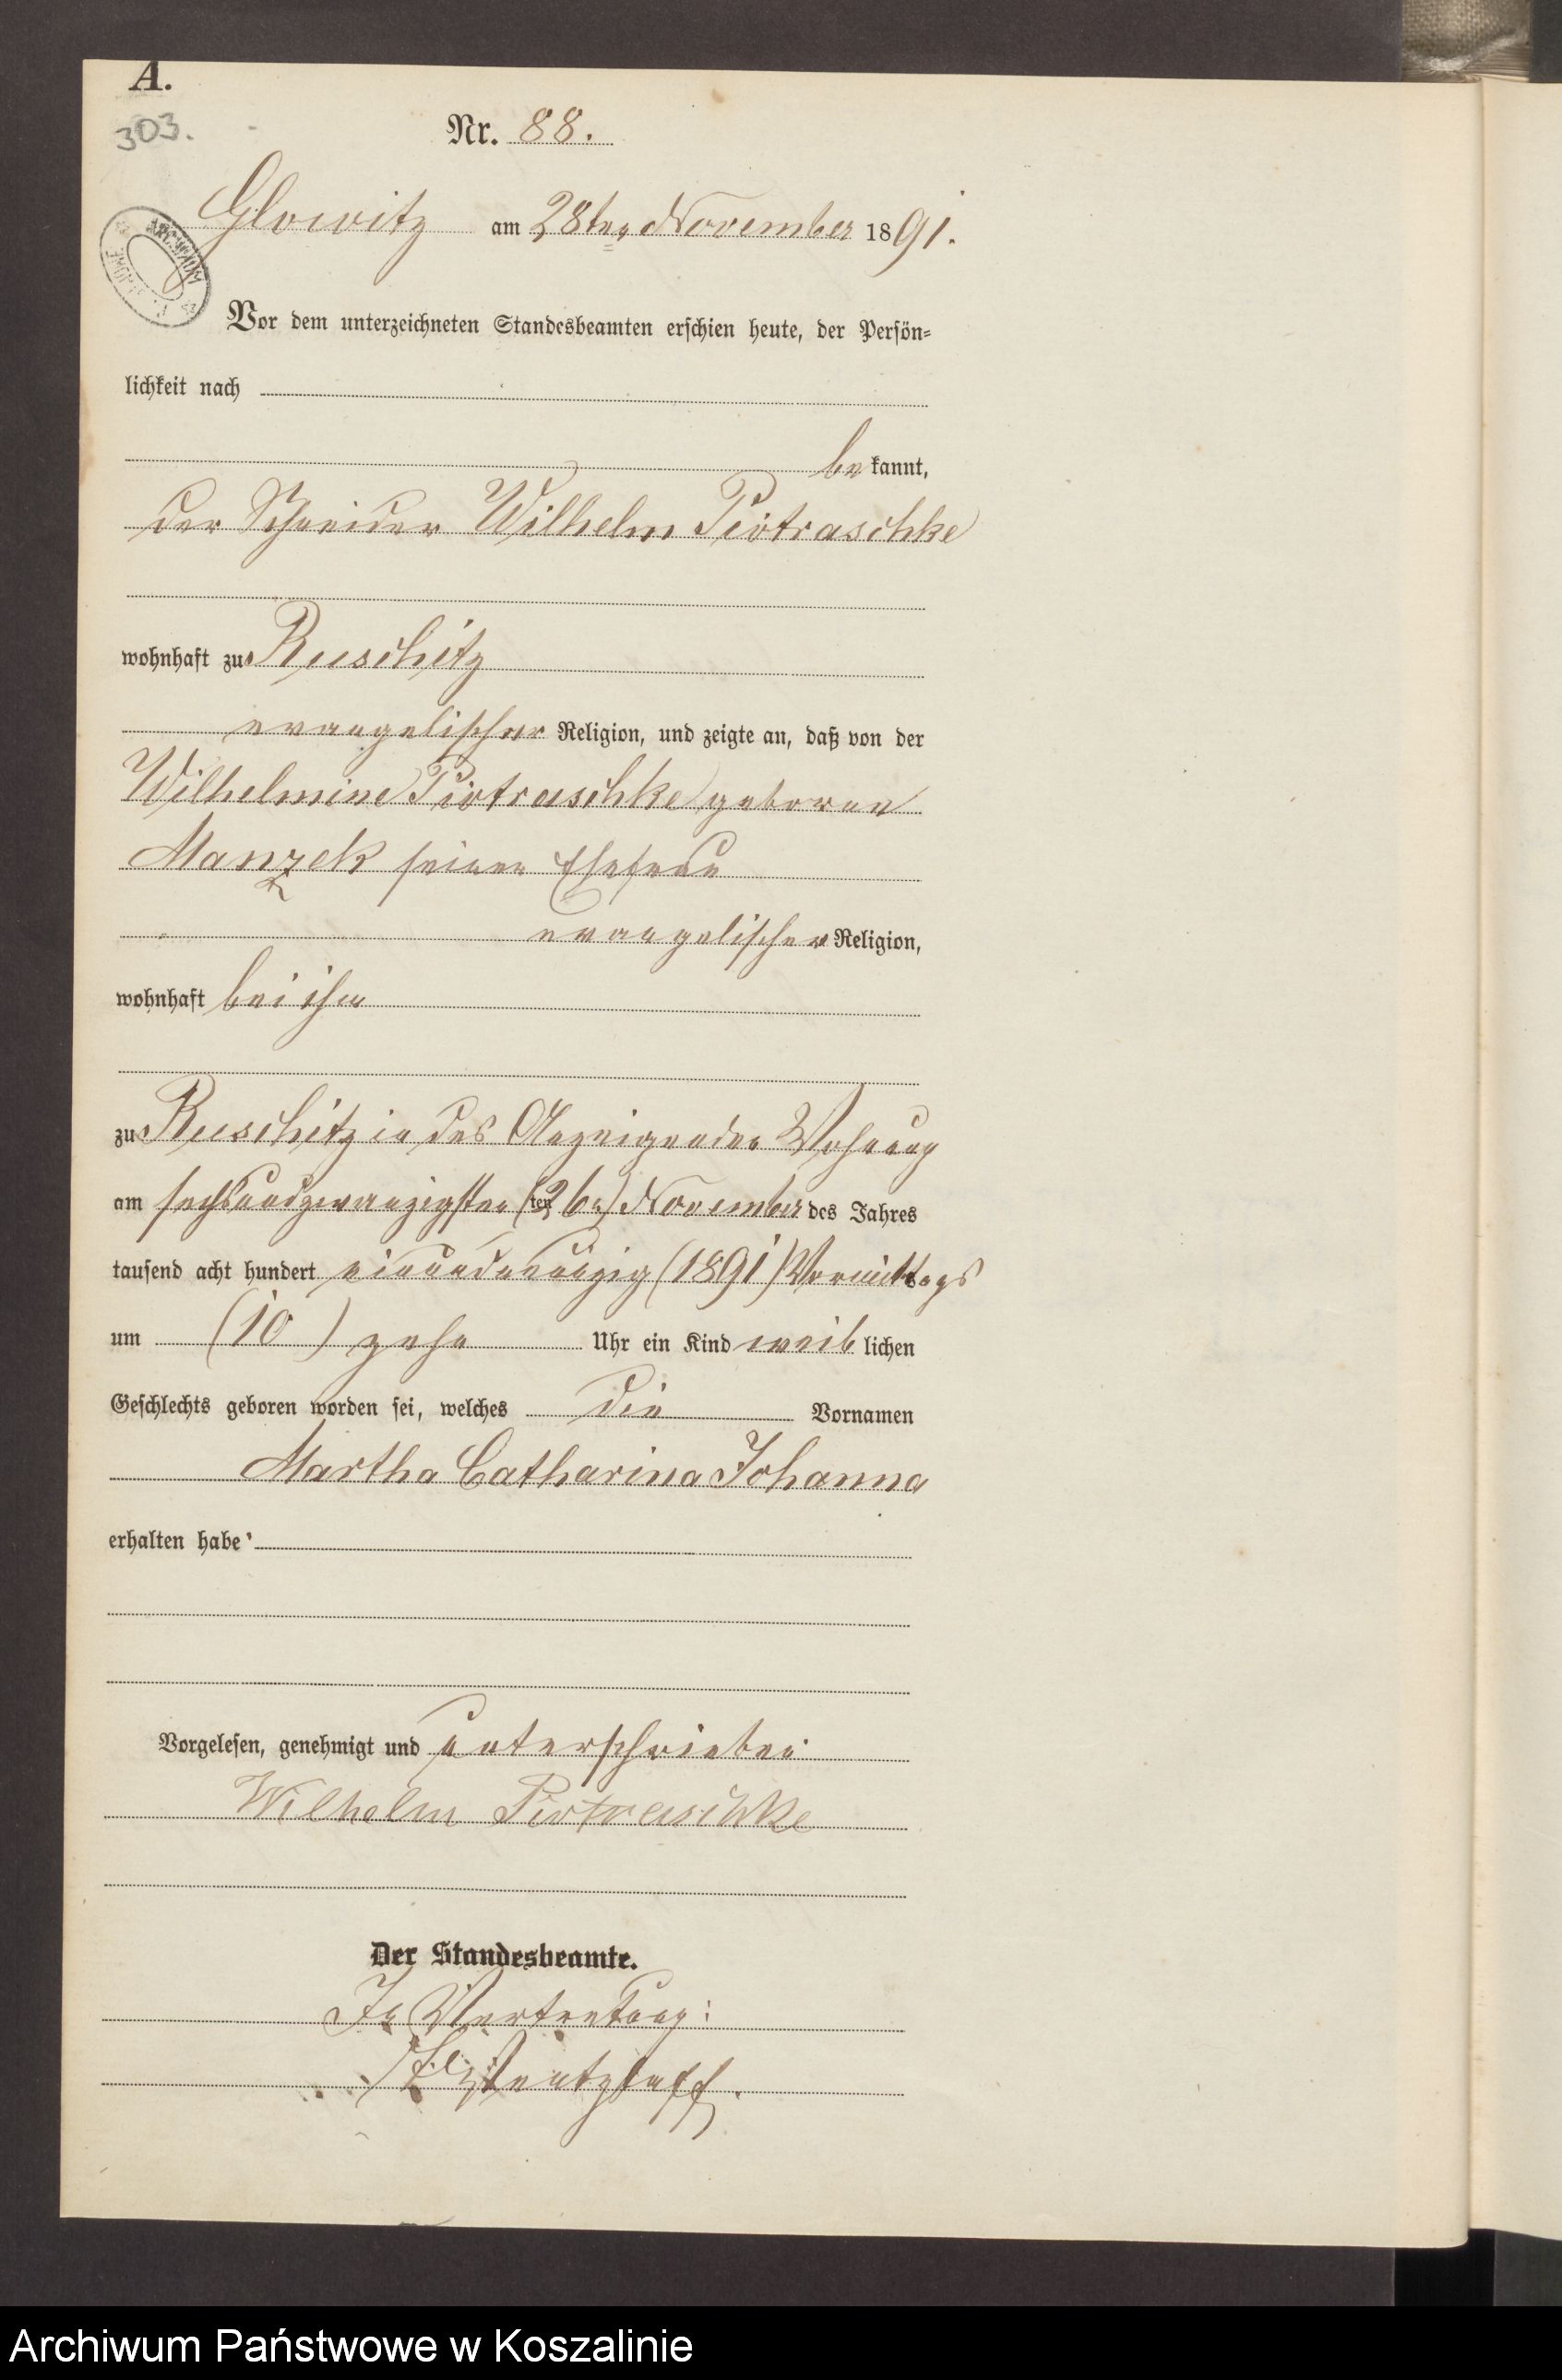 A.
303.
Nr. 88.
Glowitz am 28ten November 1891.
ARCHIWUM
Vor dem unterzeichneten Standesbeamten erschien heute, der Persön-
lichkeit nach
bekannt,
der Schneider Wilhelm Piotraschke
wohnhaft zu Ruschitz
evangelischer Religion, und zeigte an, daß von der
Wilhelmine Piotraschke geboren
Manzek seiner Ehefrau
evangelischer Religion,
wohnhaft bei ihm
zu Ruschitz in des Anzeigenden Wohnung
am sechsundzwanzigsten (26ten) November des Jahres
tausend acht hundert einundneunzig (1891) Vormittags
um (10) zehn Uhr ein Kind weiblichen
Geschlechts geboren worden sei, welches die Vornamen
Martha Catharina Johanna
erhalten habe
Vorgelesen, genehmigt und unterschrieben
Wilhelm Piotraschke
Der Standesbeamte.
In Vertretung:
Archiwum Państwowe w Koszalinie